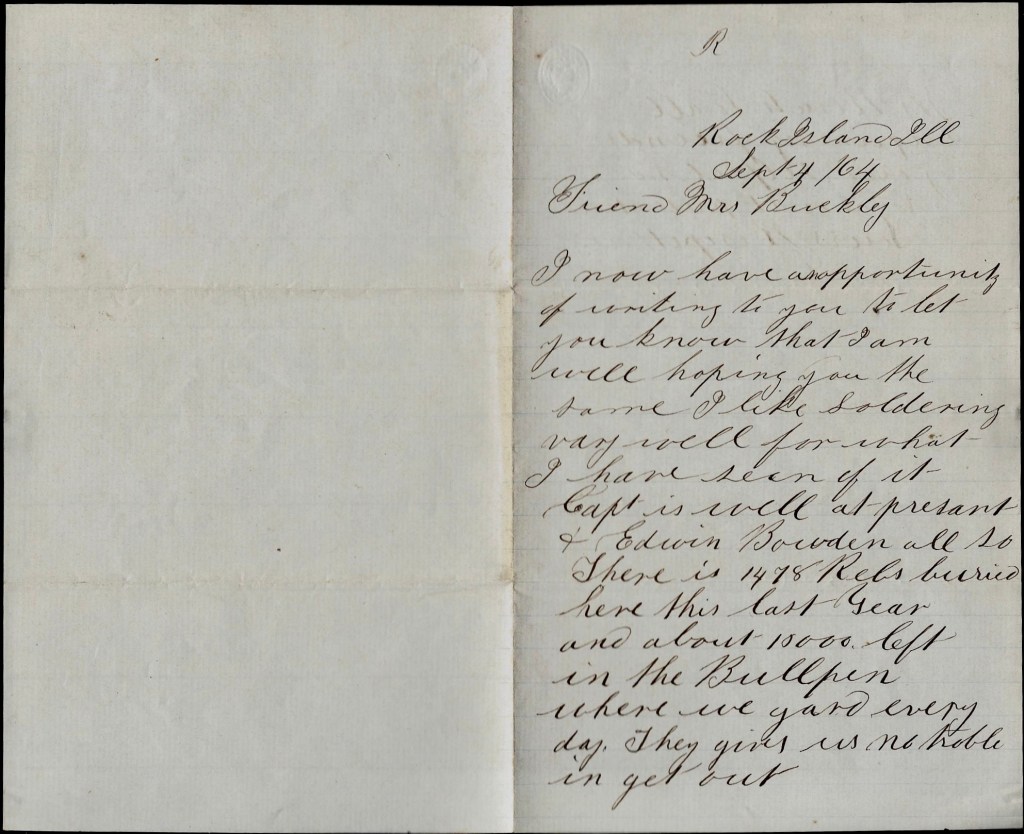 R
Rock Island Ill
Sept 4 /64
Friend Mrs Buckley
I now have an opportunity
of writing to you to let
you know that I am
well hoping you the
same I like Soldering
vary well for what
I have seen of it
Capt is well at presant
& Edwin Bowden all so
There is 1478 Rebs buried
here this last Year
and about 10000. left
in the Bullpen
where we gard every
day. They givs us no troble
in get out